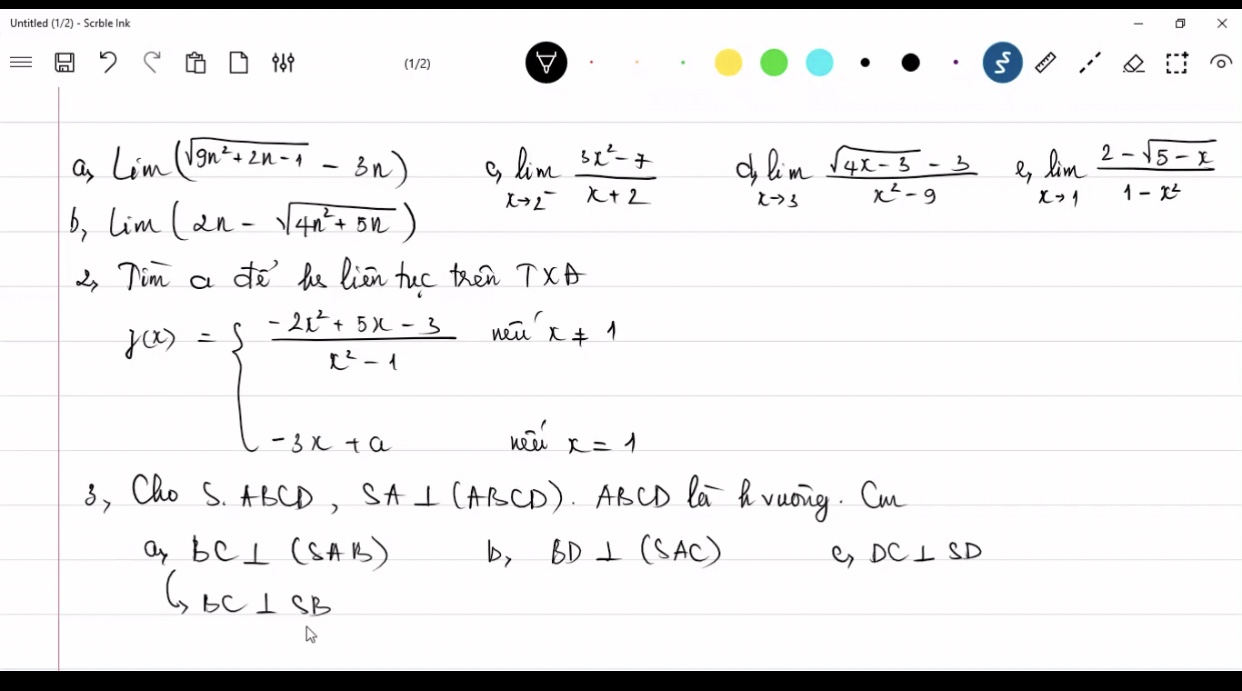 Untitled (1/2) - Scrble Ink
(1/2)
a, Lim(√(9n² + 2n - 1) - 3n) c, lim x→2⁻ (3x² - 7)/(x + 2) d, lim x→3 (√(4x - 3) - 3)/(x² - 9) e, lim x→1 (2 - √(5 - x))/(1 - x²)
b, Lim(2n - √(4n² + 5n))
2, Tìm a để hs liên tục trên TXĐ
f(x) = { (-2x² + 5x - 3)/(x² - 1) nếu x ≠ 1
-3x + a nếu x = 1
3, Cho S.ABCD, SA ⊥ (ABCD). ABCD là h vuông. Cm
a, BC ⊥ (SAB) b, BD ⊥ (SAC) c, DC ⊥ SD
↳ BC ⊥ SB